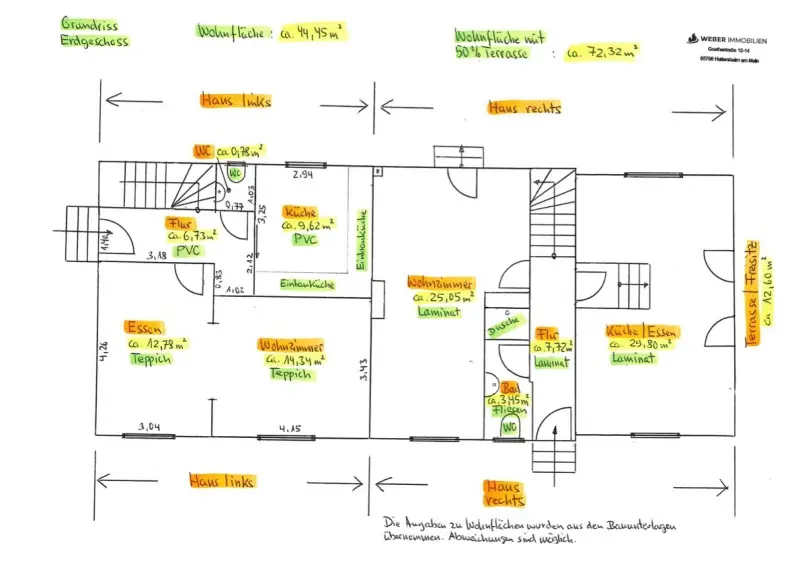 Grundriss
Erdgeschoss
Wohnfläche: ca. 44,45m²
Wohnfläche mit
50% Terrasse: ca. 72,32m²
WEBER IMMOBILIEN
Goethestraße 12-14
65795 Hattersheim am Main
Haus links
Haus rechts
WC ca. 0,78m²
WC
2,94
1,03
0,77
3,25
Küche
ca. 9,62m²
PVC
Einbauküche
Einbauküche
Flur
ca. 6,73m²
PVC
1,40
3,18
2,12
0,83
1,02
Wohnzimmer
ca. 25,05m²
Laminat
Dusche
Flur
ca. 7,72m²
Laminat
Küche/Essen
ca. 29,80m²
Laminat
Terrasse/Freisitz
ca. 12,60m²
Essen
ca. 12,78m²
Teppich
Wohnzimmer
ca. 14,34m²
Teppich
4,26
3,43
Bad
ca. 3,45m²
Fliesen
WC
3,04
4,15
Haus links
Haus
rechts
Die Angaben zu Wohnflächen wurden aus den Bauunterlagen
übernommen. Abweichungen sind möglich.